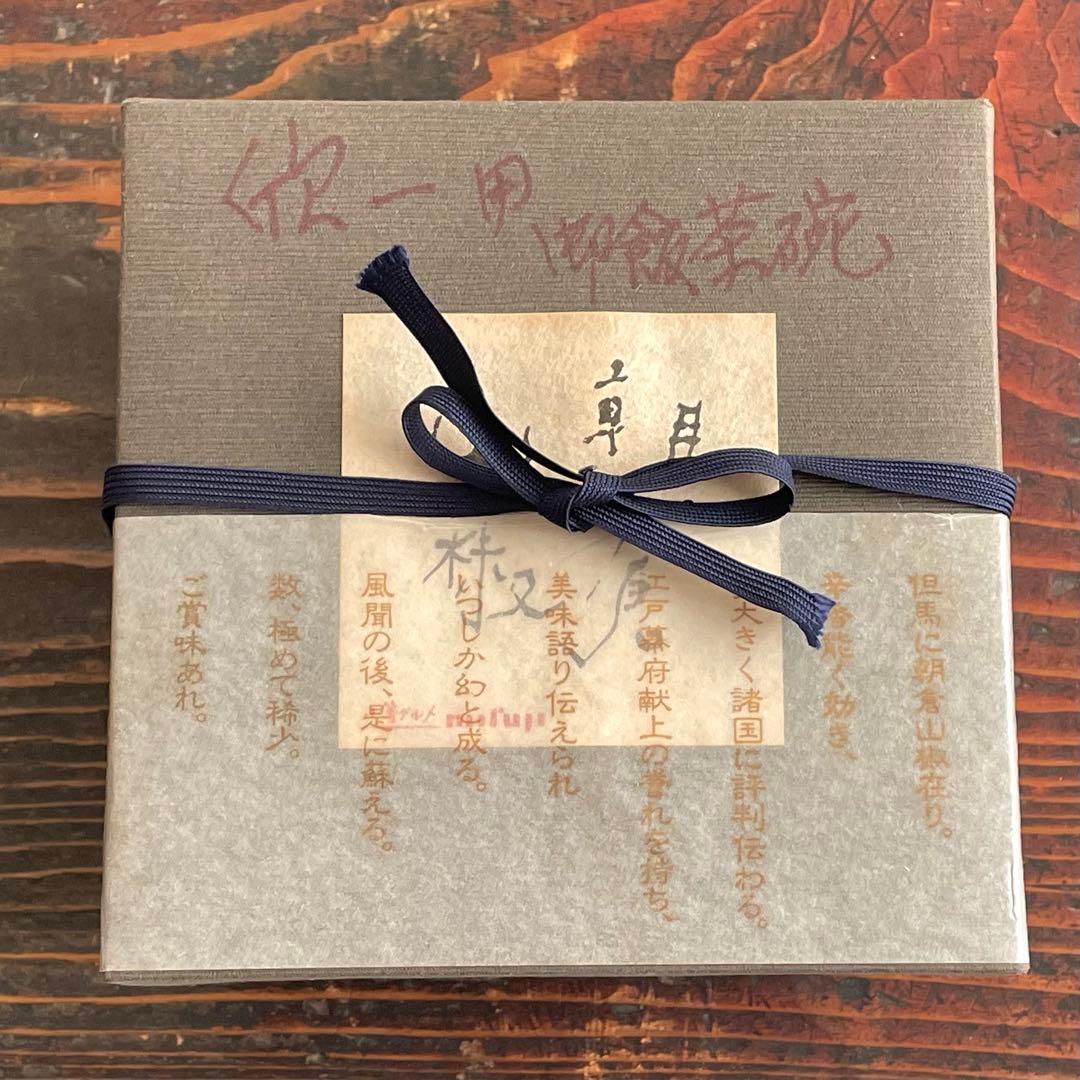 欣一用
御飯茶碗
但馬に朝倉山椒在り。
辛香能く効き、
大きく諸国に評判伝わる。
江戸幕府献上の誉れを持ち、
美味語り伝えられ
いつしか幻と成る。
風聞の後、是に蘇える。
数、極めて稀少。
ご賞味あれ。